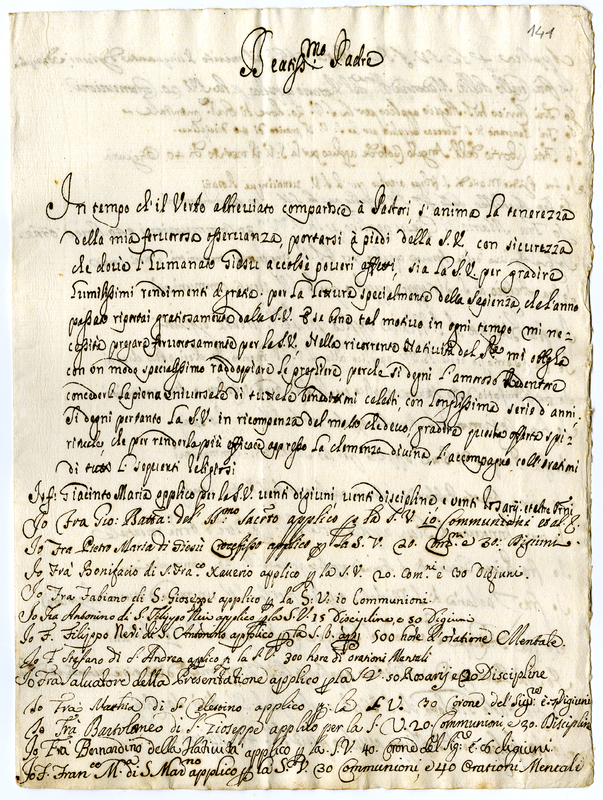 141
Beatiss.mo Padre
In tempo ch'il Verbo abbreviato compartisce à Pastori s'anima la tenerezza
della mia fervorosa osservanza, portarsi à piedi della S.V. con sicurezza
che dove l'Humanato Giesù accolse poveri affetti, sia la S.V. per gradire
humilissimi rendimenti di gratie per la lettura specialmente della Sapienza, che l'anno
passato riportai gratiosamente dalla S.V. E se bene tal motivo in ogni tempo mi ne-
cessità pregare fervorosamente per la S.V. Nella ricorrente Natività del mi obliga
con un modo specialissimo raddoppiare le preghiere, perche si degni l'amoroso Redentore
concederli la piena universale di tutte le beneditt.mi celesti, con longhissima serie d'anni,
Si degni pertanto la S.V. in ricompenza del molto che devo, gradire questa offerta spi-
rituale, che per renderla più efficace appresso la clemenza divina, l'accompagno coll'orationi
di tutti li sequenti Religiosi
Io f. Giacinto Maria applico per la S.V. venti digiuni venti discipline e venti Rosarij
Io Fra Gio: Batta: del SS.mo Sacro applico p la S.V. 10. Communioni
Io Fra Pietro Maria di Giesù Crocefisso applico p la S.V. 20. Com.ni e 30. Digiuni.
Io Fra Bonifacio di S. Fra.co Xaverio applico p la S.V. 20. Com.ni è 30 Digiuni.
Io Fra Fabiano di S. Gioseppe applico p la S.V. 10 Communioni
Io Fra Antonino di S. Filippo Neri applico p la S.V. 15 Discipline, e 30 Digiuni
Io F. Filippo Neri di S. Antonino applico p la S.V. 500 hore d'oratione Mentale.
Io F. Stefano di S. Andrea applico p la S.V. 300 hore di orationi Mentali
Io Fra Salvatore della Presentatione applico p la S.V. 50 Rosarij e 20 Discipline
Io Fra Mathia di S. Celestino applico p la S.V. 30 Corone del Sig.re è digiuni
Io Fra Bartolomeo di S. Gioseppe applico per la S.V. 20. Communioni e 30. Discipline
Io Fra Bernardino della Natività applico p la S.V. 40. Corone del Sig.re è. digiuni.
Io F. Fran.co M. di S. applico p la S.V. 30 Communioni, e 40 Orationi Mentale